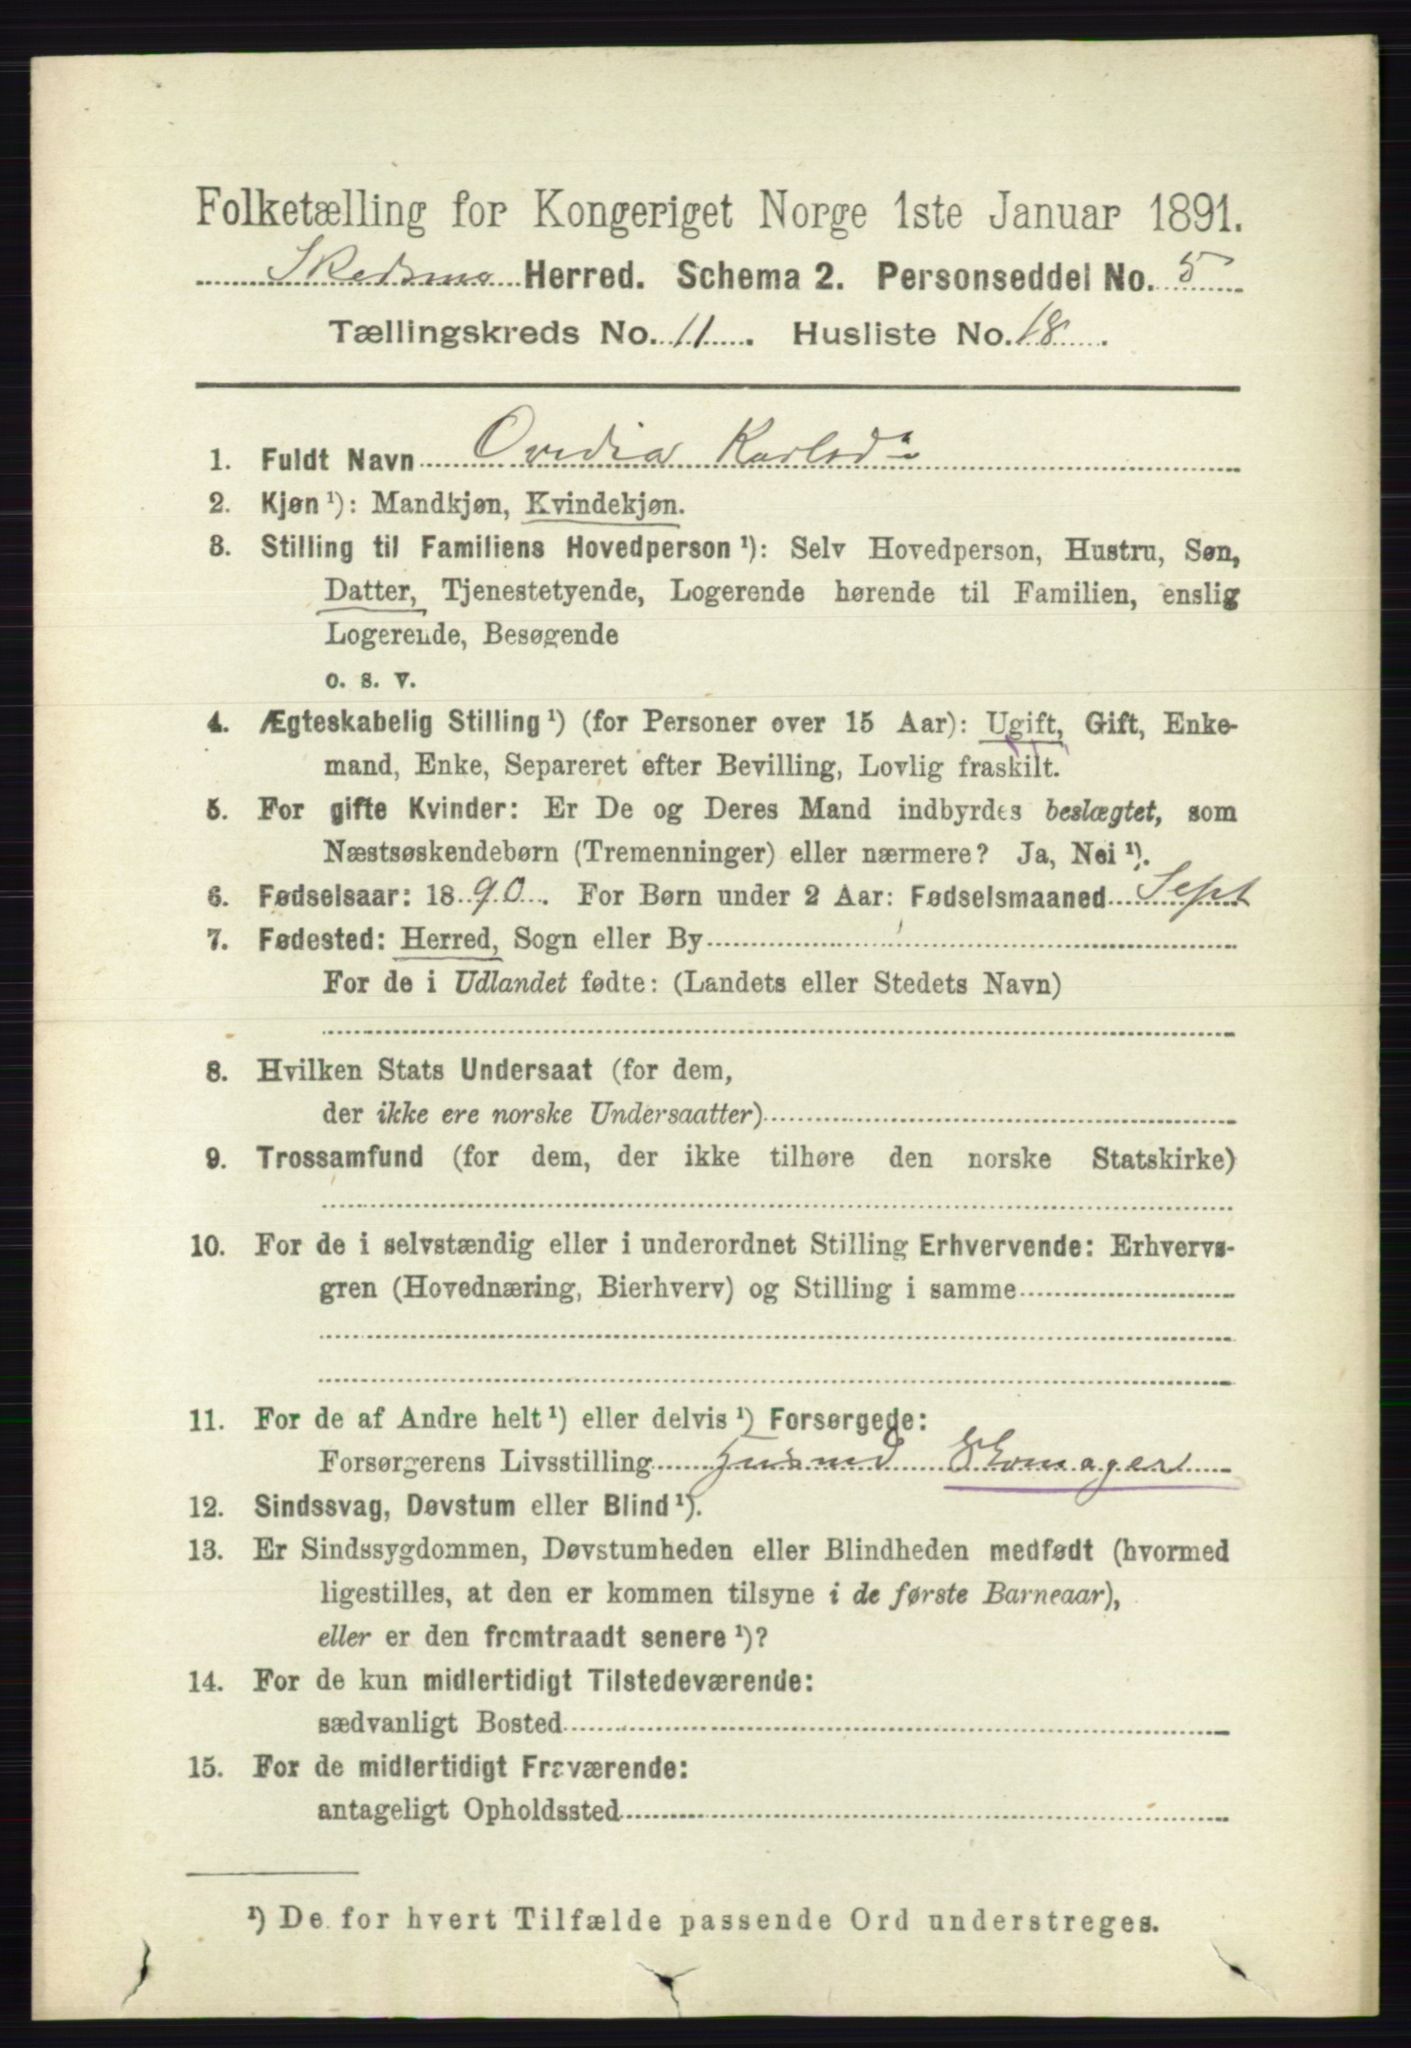 Folketælling for Kongeriget Norge 1ste Januar 1891.
Skedsmo Herred. Schema 2. Personseddel No. 5
Tællingskreds No. 11. Husliste No. 18.
1. Fuldt Navn Ovidia Karlsdn
2. Kjøn ¹): Mandkjøn, Kvindekjøn.
3. Stilling til Familiens Hovedperson ¹): Selv Hovedperson, Hustru, Søn,
Datter, Tjenestetyende, Logerende hørende til Familien, enslig
Logerende, Besøgende
o. s. v.
4. Ægteskabelig Stilling ¹) (for Personer over 15 Aar): Ugift, Gift, Enke-
mand, Enke, Separeret efter Bevilling, Lovlig fraskilt.
5. For gifte Kvinder: Er De og Deres Mand indbyrdes beslægtet, som
Næstsøskendebørn (Tremenninger) eller nærmere? Ja, Nei ¹).
6. Fødselsaar: 1890. For Børn under 2 Aar: Fødselsmaaned Sept
7. Fødested: Herred, Sogn eller By
For de i Udlandet fødte: (Landets eller Stedets Navn)
8. Hvilken Stats Undersaat (for dem,
der ikke ere norske Undersaatter)
9. Trossamfund (for dem, der ikke tilhøre den norske Statskirke)
10. For de i selvstændig eller i underordnet Stilling Erhvervende: Erhvervs-
gren (Hovednæring, Bierhverv) og Stilling i samme
11. For de af Andre helt ¹) eller delvis ¹) Forsørgede:
Forsørgerens Livsstilling Husmd Skomager
12. Sindssvag, Døvstum eller Blind ¹).
13. Er Sindssygdommen, Døvstumheden eller Blindheden medfødt (hvormed
ligestilles, at den er kommen tilsyne i de første Barneaar),
eller er den fremtraadt senere ¹)?
14. For de kun midlertidigt Tilstedeværende:
sædvanligt Bosted
15. For de midlertidigt Fraværende:
antageligt Opholdssted
¹) De for hvert Tilfælde passende Ord understreges.